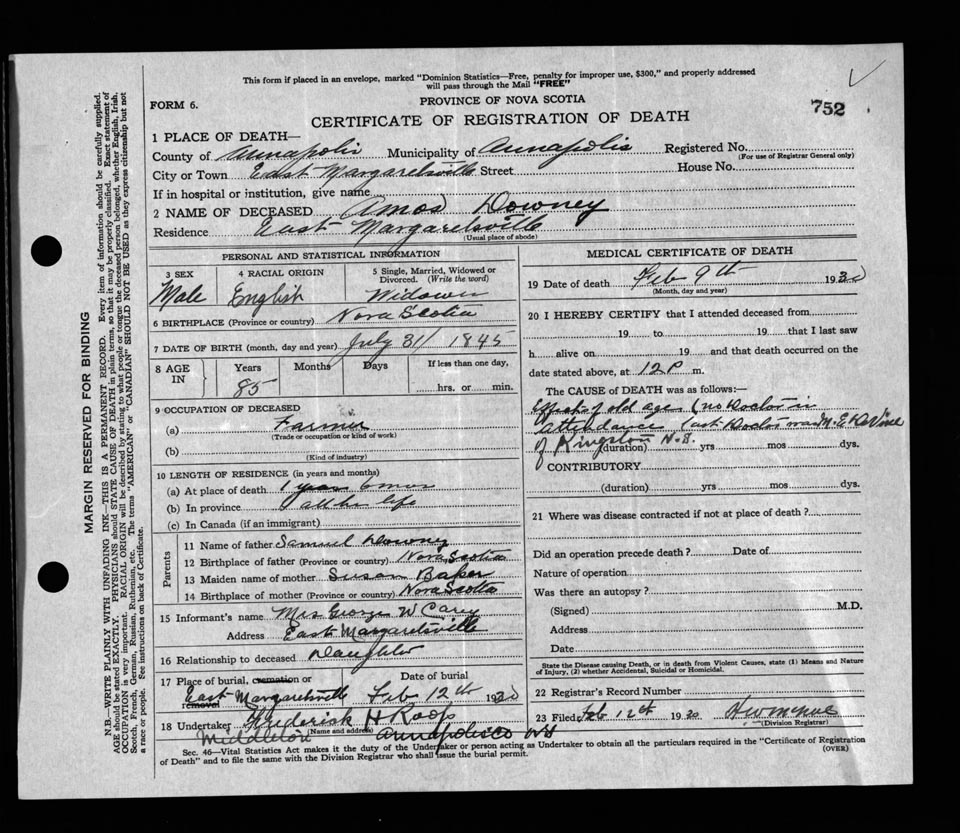 This form if placed in an envelope, marked "Dominion Statistics—Free, penalty for improper use, $300," and properly addressed
will pass through the Mail "FREE"
FORM 6.
PROVINCE OF NOVA SCOTIA
752
CERTIFICATE OF REGISTRATION OF DEATH
1 PLACE OF DEATH—
County of Annapolis Municipality of Annapolis Registered No.
(For use of Registrar General only)
City or Town East Margaretsville Street House No.
If in hospital or institution, give name
2 NAME OF DECEASED Amos Downey
Residence East Margaretsville
(Usual place of abode)
PERSONAL AND STATISTICAL INFORMATION
3 SEX Male
4 RACIAL ORIGIN English
5 Single, Married, Widowed or Divorced. (Write the word)
Widower
6 BIRTHPLACE (Province or country) Nova Scotia
7 DATE OF BIRTH (month, day and year) July 31 1845
8 AGE IN Years Months Days If less than one day,
85 hrs. or min.
9 OCCUPATION OF DECEASED
(a) Farmer
(Trade or occupation or kind of work)
(b)
(Kind of industry)
10 LENGTH OF RESIDENCE (in years and months)
(a) At place of death 1 year 6 mos
(b) In province all his life
(c) In Canada (if an immigrant)
Parents
11 Name of father Samuel Downey
12 Birthplace of father (Province or country) Nova Scotia
13 Maiden name of mother Susan Baker
14 Birthplace of mother (Province or country) Nova Scotia
15 Informant's name Mrs George W Carey
Address East Margaretsville
16 Relationship to deceased Daughter
17 Place of burial, cremation or removal Date of burial
East Margaretsville Feb 12th 1930
18 Undertaker Frederick H Roop
(Name and address)
Middleton Annapolis Co NS
MEDICAL CERTIFICATE OF DEATH
19 Date of death Feb 9th 1930
(Month, day and year)
20 I HEREBY CERTIFY that I attended deceased from
19 to 19 that I last saw
h alive on 19 and that death occurred on the
date stated above, at 12 P m.
The CAUSE of DEATH was as follows:—
Effects of old age (no Doctor in
attendance last Doctor was M.E.
of Kingston N.S.
(duration) yrs mos dys.
CONTRIBUTORY
(duration) yrs mos dys.
21 Where was disease contracted if not at place of death?
Did an operation precede death? Date of
Nature of operation
Was there an autopsy?
(Signed) M.D.
Address
Date
State the Disease causing Death, or in death from Violent Causes, state (1) Means and Nature
of Injury, (2) whether Accidental, Suicidal or Homicidal.
22 Registrar's Record Number
23 Filed Feb 12th 1930
(Division Registrar)
Sec. 46—Vital Statistics Act makes it the duty of the Undertaker or person acting as Undertaker to obtain all the particulars required in the "Certificate of Registration
of Death" and to file the same with the Division Registrar who shall issue the burial permit.
(OVER)
MARGIN RESERVED FOR BINDING
N.B.—WRITE PLAINLY WITH UNFADING INK—THIS IS A PERMANENT RECORD. Every item of information should be carefully supplied.
AGE should be stated EXACTLY. PHYSICIANS should STATE CAUSE OF DEATH in plain terms, so that it may be properly classified. Exact statement of
OCCUPATION is very important. RACIAL ORIGIN will be described by stating to what people or tongue the deceased person belonged, whether English, Irish,
Scotch, French, German, Russian, Ruthenian, etc. The terms "AMERICAN" or "CANADIAN" SHOULD NOT BE USED as they express citizenship but not
a race or people. See instructions on back of Certificate.